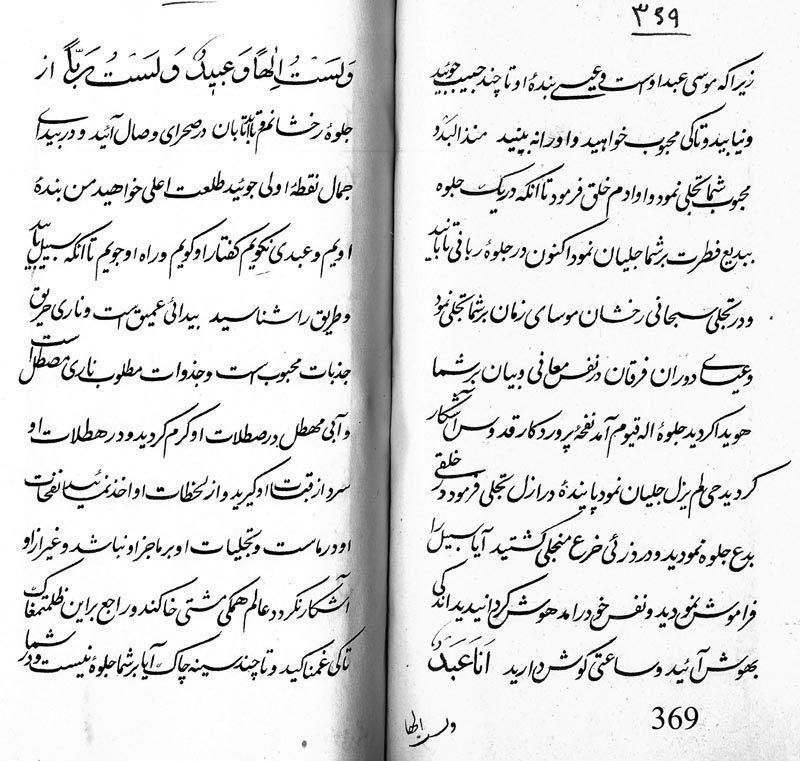 ۳۶۹
زیرا که موسی عبد اوست و عیسی بندهٔ او تا چند حبیب جوئید
و نیابید و تا کی محبوب خواهید و او را نه بینید منذ البدء
محبوب شما تجلی نمود و اوادم خلق فرمود تا آنکه در یک جلوه
ببدیع فطرت بر شما جلیان نمود اکنون در جلوهٔ ربانی تابانید
و در تجلی سبحانی رخشان موسای زمان بر شما تجلی نمود
و عیسای دوران فرقان در نفس معانی و بیان بر شما
هویدا کردید جلوهٔ اله قیوم آمد نفحهٔ پروردکار قدوس آشکار
کردید حی لم یزل جلیان نمود پایندهٔ در ازل تجلی فرمود در خلقی
بدع جلوه نمودید و در ذرئی خرع منجلی کشتید آیا سبیل را
فراموش نمودید و نفس خود را مدهوش کردانیدید اندکی
بهوش آئید و ساعتی کوش دارید اَنَا عَبدٌ
ولست الها
369
وَلَستُ اِلٰهاً وَ عَبیدٌ وَ لَستُ رَبّاً از
جلوهٔ رخشانم و تابانید تابان در صحرای وصال آئید و در بیدای
جمال نقطهٔ اولی جوئید طلعت اعلی خواهید من بندهٔ
اویم و عبدی نکویم کفتار او کویم و راه او جویم تا آنکه سبیل یابید
و طریق را شناسید بیدائی عمیق است و ناری حریق
جذبات محبوب است و جذوات مطلوب ناری مصطل است
و آبی مهطل در صطلات او کرم کردید و در هطلات او
سرد از قبسات او کیرید و از لحظات او اخذ نمائید نفحات
او در ماست و تجلیات او بر ما جز او نباشد و غیر از او
آشکار نکردد عالم همکی مشتی خاکند و راجع بر این ظلمتمغاک
تا کی غمناکید و تا چند سینه چاک آیا بر شما جلوهٔ نیست و در شما